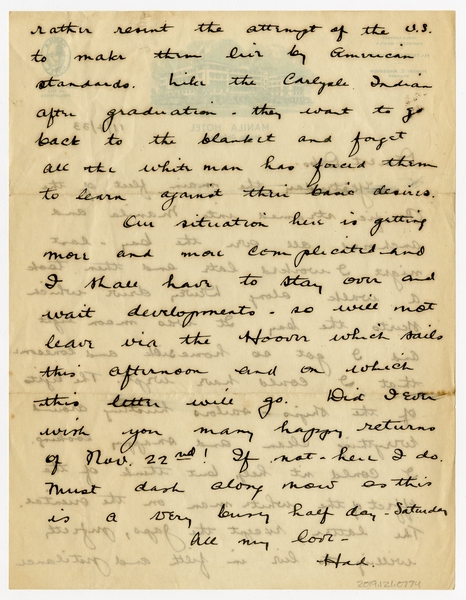 rather resent the attempt of the U.S.
to make them live by American
standards. Like the Carlysle Indian
after graduation - they want to go
back to the blanket and forget
all the white man has forced them
to learn against their basic desires.
Our situation here is getting
more and more complicated and
I shall have to stay over and
wait developments - so will not
leave via the Hoover which sails
this afternoon and on which
this letter will go. Did I ever
wish you many happy returns
of Nov. 22nd! If not - here I do.
Must dash along now as this
is a very busy half day - Saturday
All my love -
Had.
2019.121.0774